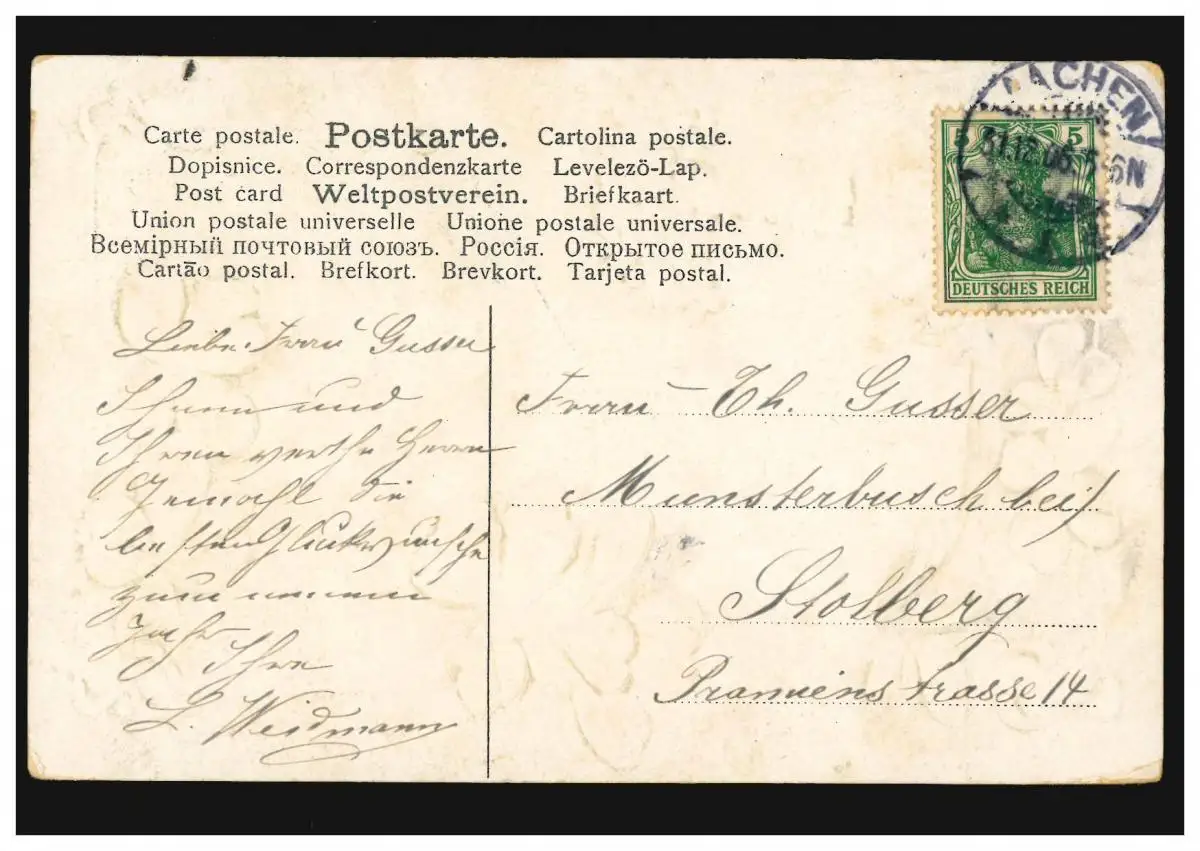 Carte postale. Postkarte. Cartolina postale.
Dopisnice. Correspondenzkarte Levelezö-Lap.
Post card Weltpostverein. Briefkaart.
Union postale universelle Unione postale universale.
Всемірный почтовый союзъ. Россія. Открытое письмо.
Cartāo postal. Brefkort. Brevkort. Tarjeta postal.
AACHEN
31.12.06. 5-6N
5 5
DEUTSCHES REICH
Liebe Frau Gusser
Ihnen und
Ihren werthe Herrn
Gemahl die
besten Glückwünsche
zum neuen
Jahr
Ihre
L. Weidmann
Frau Th. Gusser
Munsterbusch bei
Stolberg
Pramienstrasse 14